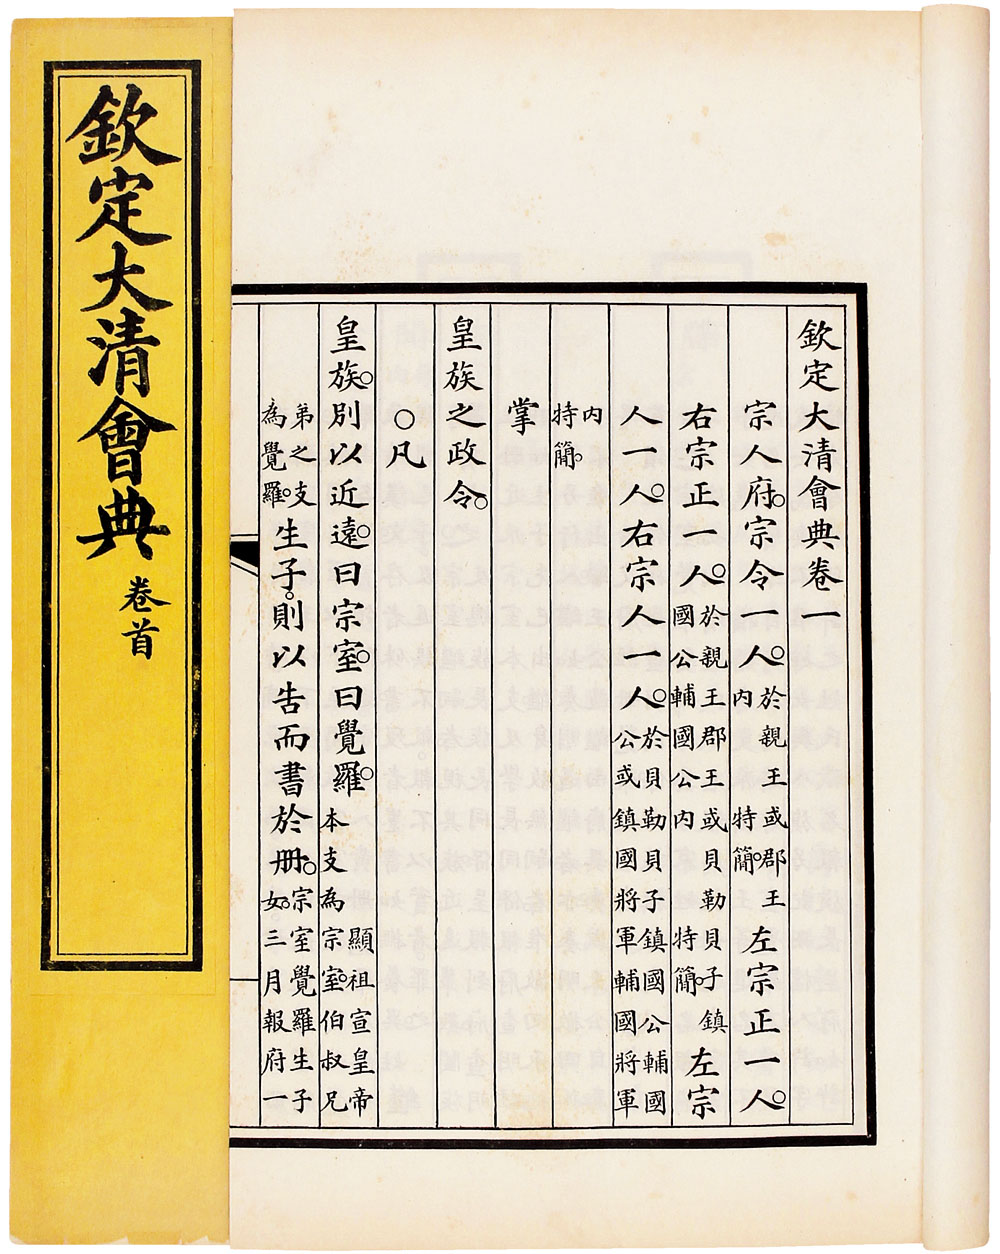 欽定大清會典 卷首
欽定大清會典卷一
宗人府。宗令一人。於親王或郡王內特簡。左宗正一人。
右宗正一人。於親王郡王或貝勒貝子鎮國公輔國公內特簡。左宗
人一人。右宗人一人。於貝勒貝子鎮國公輔國公或鎮國將軍輔國將軍
內特簡。
掌
皇族之政令。
○凡
皇族。別以近遠。曰宗室。曰覺羅。顯祖宣皇帝本支為宗室。伯叔兄
弟之支為覺羅。生子。則以告而書於冊。宗室覺羅生子女。三月報府一